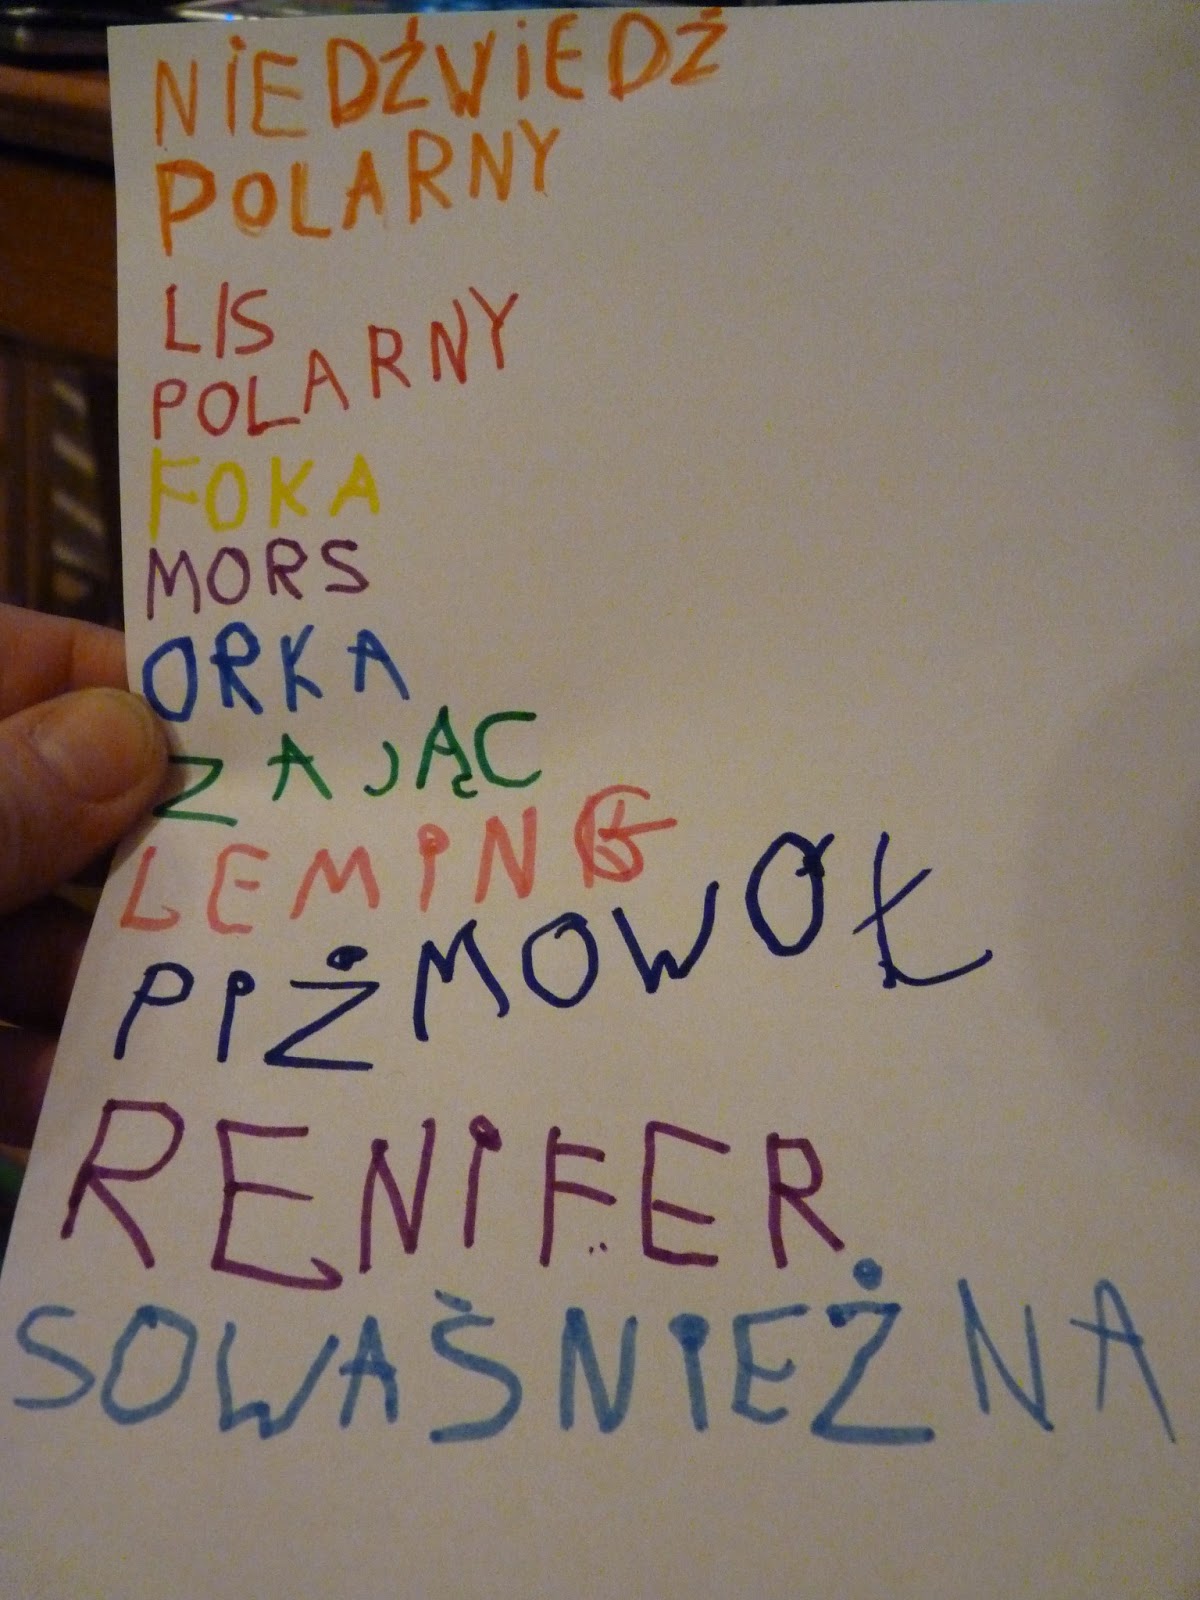 NIEDŹWIEDŹ
POLARNY
LIS
POLARNY
FOKA
MORS
ORKA
ZAJĄC
LEMING
PIŻMOWÓŁ
RENIFER
SOWAŚNIEŻNA